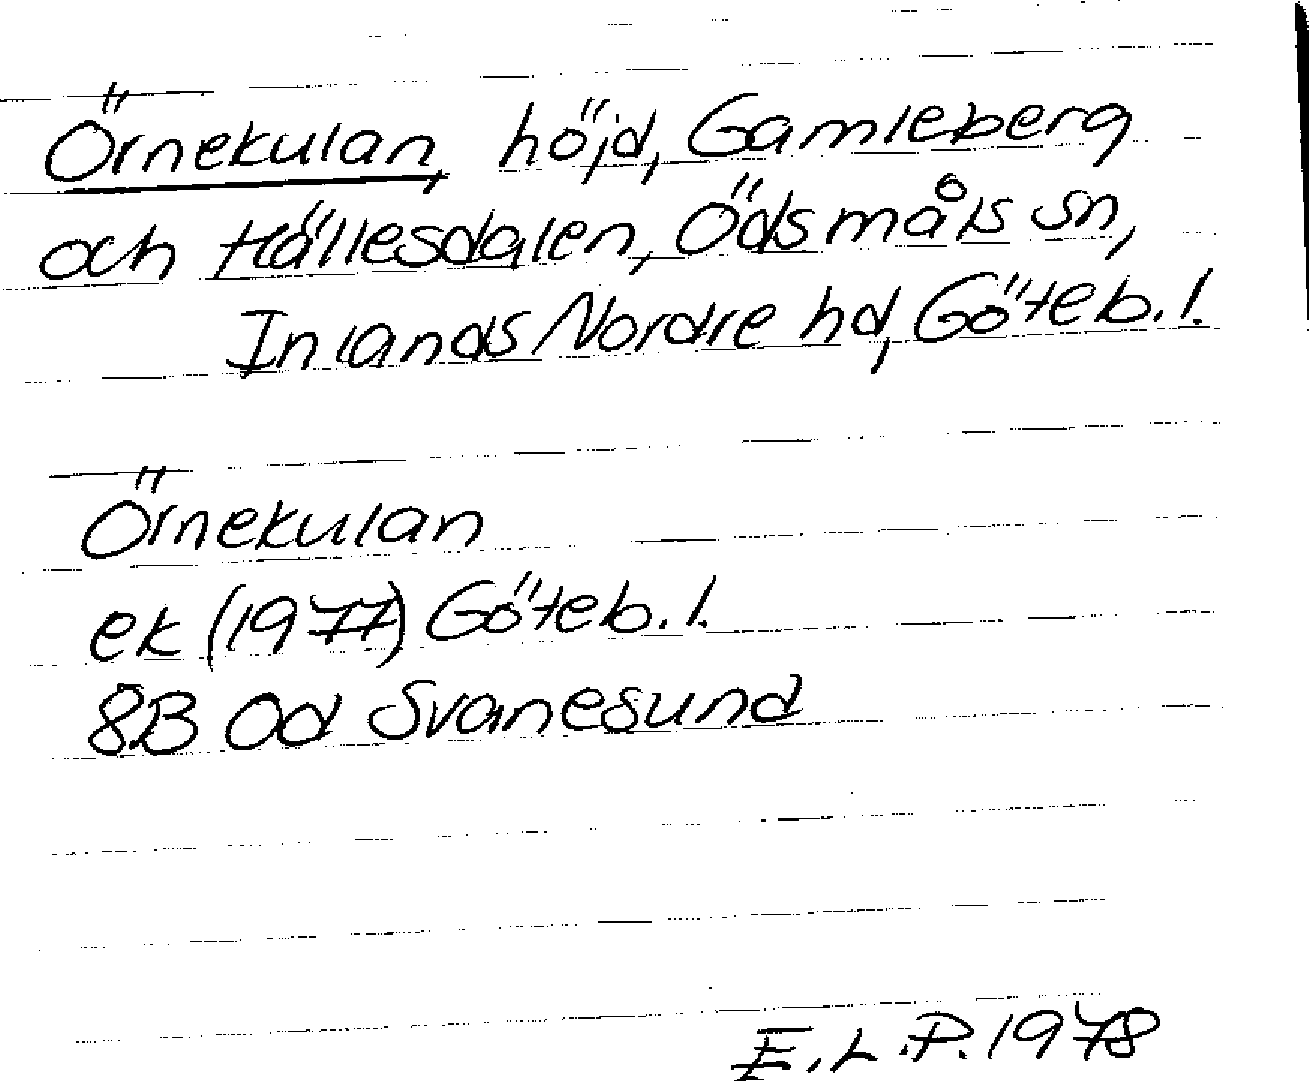 Örnekulan, höjd, Gamleberg
och Hällesdalen, Ödsmåls sn,
Inlands Nordre hd, Göteb. l.
Örnekulan
ek (1977) Göteb. l.
8B 0d Svanesund
E.L.P. 1978